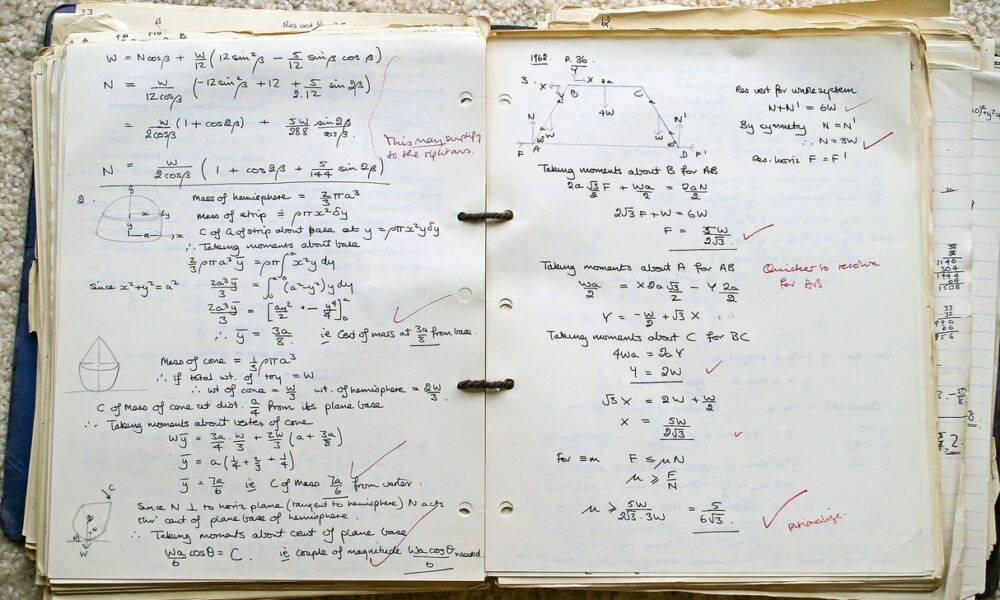 33
β
Res vert
W = Ncosβ + W/12 (12sin²β − 5/12 sinβ cosβ)
N = W/12cosβ (−12sin²β + 12 + 5/2.12 sin2β)
= W/2cosβ (1 + cos2β) + 5W/288 sin2β/cosβ.
This may simplify
to the right ans.
N = W/2cosβ (1 + cos2β + 5/144 sin2β)
2.
y
x δy
y
a x
Mass of hemisphere = 2/3 πa³
Mass of strip ≑ ρπx²δy
C of G of strip about base at y = ρπx²yδy
∴ Taking moments about base
2/3 ρπa³ȳ = ρπ∫₀ᵃ x²y dy
since x²+y² = a²
2a³ȳ/3 = ∫₀ᵃ (a²−y²) y dy
2a³ȳ/3 = [ay²/2 − y⁴/4]₀ᵃ
∴ ȳ = 3a/8. ie Cent of mass at 3a/8 from base.
Mass of cone = 1/3 ρπa³
∴ If total wt. of toy = W
∴ wt of cone = W/3 wt. of hemisphere = 2W/3.
C of Mass of cone at dist. a/4 from its plane base
∴ Taking moments about vertex of cone
Wȳ = 3a/4 . W/3 + 2W/3 (a + 3a/8)
ȳ = a(1/4 + 2/3 + 1/4)
ȳ = 7a/6 ie C of Mass 7a/6 from vertex.
C
W
Since N ⊥ to horiz plane (tangent to hemisphere) N acts
thr' cent of plane base of hemisphere.
∴ Taking moments about cent of plane base
Wa/6 cosθ = C. ie couple of magnitude Wa cosθ/6 needed.
12.
1962 P. 36
3.
Y
X 2a
X B C
4W
N N'
W W
F A D F'
Res vert for whole system
N+N' = 6W
By symmetry N = N'
∴ N = 3W
Res. horiz F = F'
Taking moments about B for AB
2a √3/2 F + Wa/2 = 2aN/2
2√3 F + W = 6W
F = 5W/2√3
Taking moments about A for AB
Quicker to resolve
for AB
Wa/2 = X2a√3/2 − Y 2a/2
Y = −W/2 + √3 X
Taking moments about C for BC
4Wa = 2aY
Y = 2W
√3 X = 2W + W/2
X = 5W/2√3
for ≡m F ≤ μN
μ ≥ F/N
μ ≥ 5W/2√3.3W = 5/6√3.
rationalize.